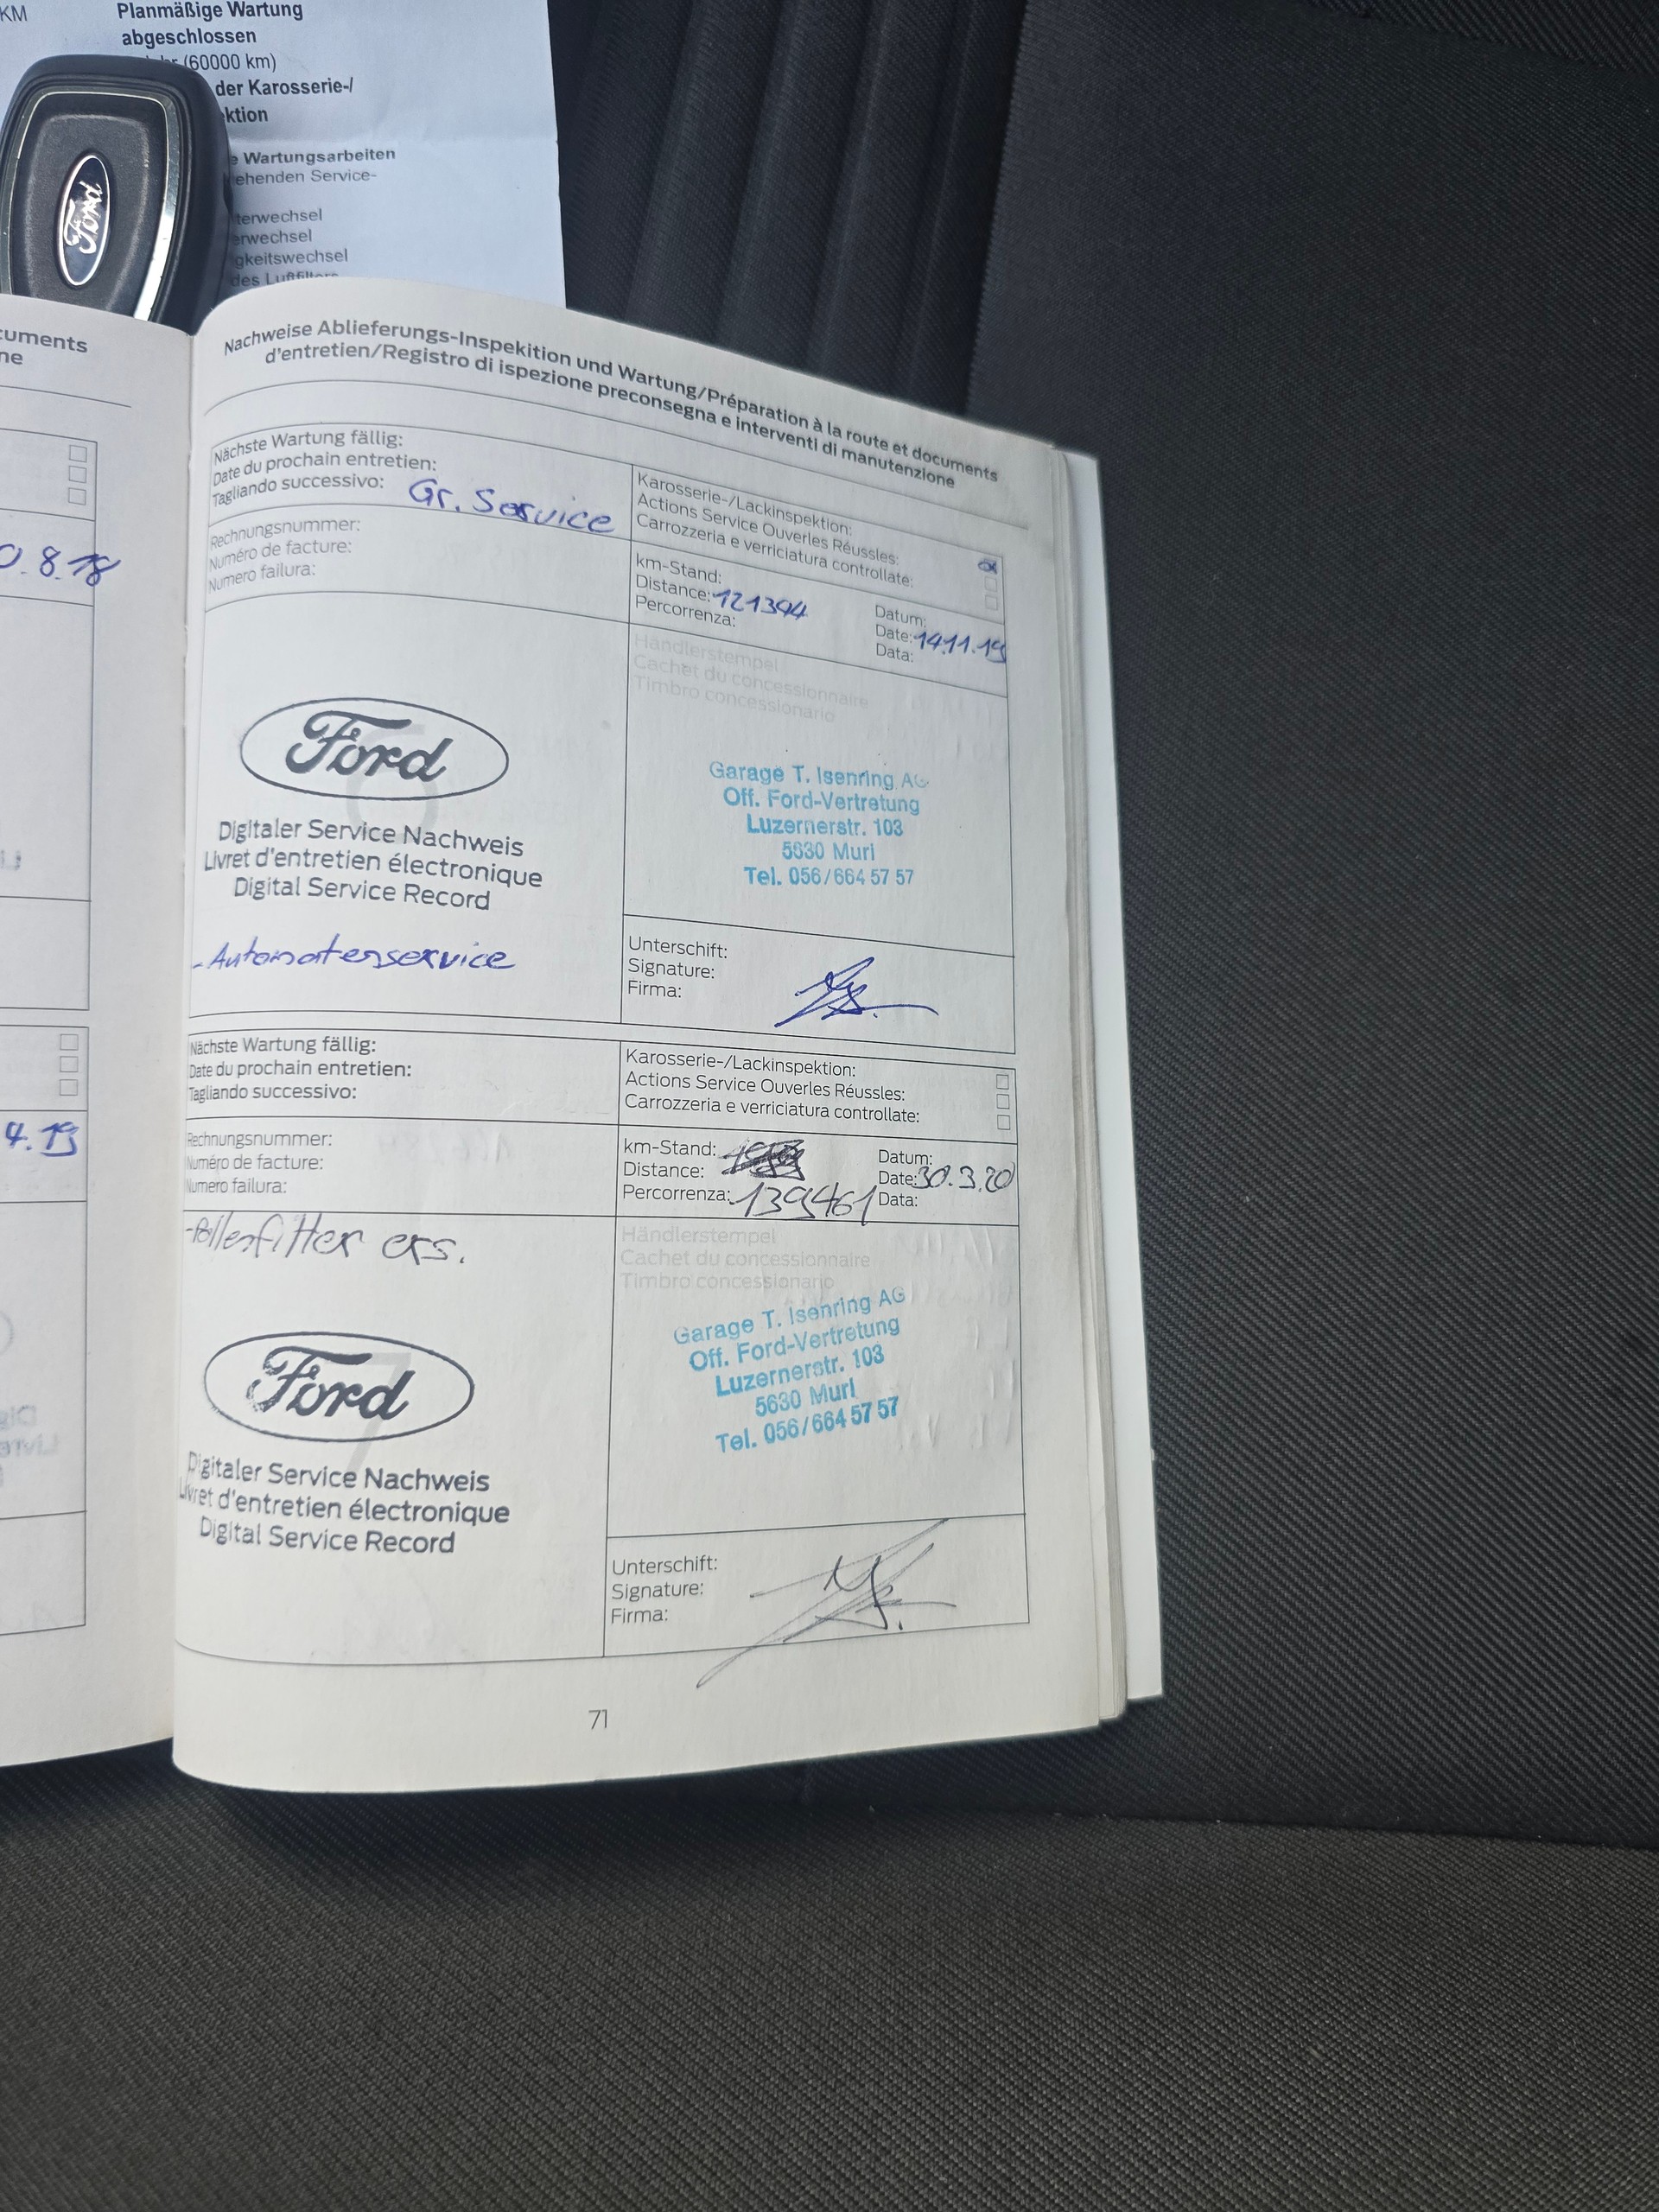 KM
Planmäßige Wartung
abgeschlossen
(60000 km)
der Karosserie-/
ktion
e Wartungsarbeiten
ehenden Service-
terwechsel
erwechsel
gkeitswechsel
des Luftfilters
Ford
cuments
ne
0.8.18
4.19
Nachweise Ablieferungs-Inspekition und Wartung/Préparation à la route et documents
d'entretien/Registro di ispezione preconsegna e interventi di manutenzione
Nächste Wartung fällig:
Date du prochain entretien:
Tagliando successivo: Gr. Service
Karosserie-/Lackinspektion:
Actions Service Ouverles Réussles:
Carrozzeria e verriciatura controllate:
Rechnungsnummer:
Numéro de facture:
Numero failura:
km-Stand:
Distance: 121394
Percorrenza:
Datum:
Date: 14.11.19
Data:
Händlerstempel
Cachet du concessionnaire
Timbro concessionario
Ford
6
Digitaler Service Nachweis
Livret d'entretien électronique
Digital Service Record
- Automatenservice
Garage T. Isenring AG
Off. Ford-Vertretung
Luzernerstr. 103
5630 Muri
Tel. 056/664 57 57
Unterschift:
Signature:
Firma:
Nächste Wartung fällig:
Date du prochain entretien:
Tagliando successivo:
Karosserie-/Lackinspektion:
Actions Service Ouverles Réussles:
Carrozzeria e verriciatura controllate:
Rechnungsnummer:
Numéro de facture:
Numero failura:
km-Stand:
Distance:
Percorrenza: 139461
Datum:
Date: 30.3.20
Data:
- Pollenfilter ers.
Händlerstempel
Cachet du concessionnaire
Timbro concessionario
Ford
7
Digitaler Service Nachweis
Livret d'entretien électronique
Digital Service Record
Garage T. Isenring AG
Off. Ford-Vertretung
Luzernerstr. 103
5630 Muri
Tel. 056/664 57 57
Unterschift:
Signature:
Firma:
71